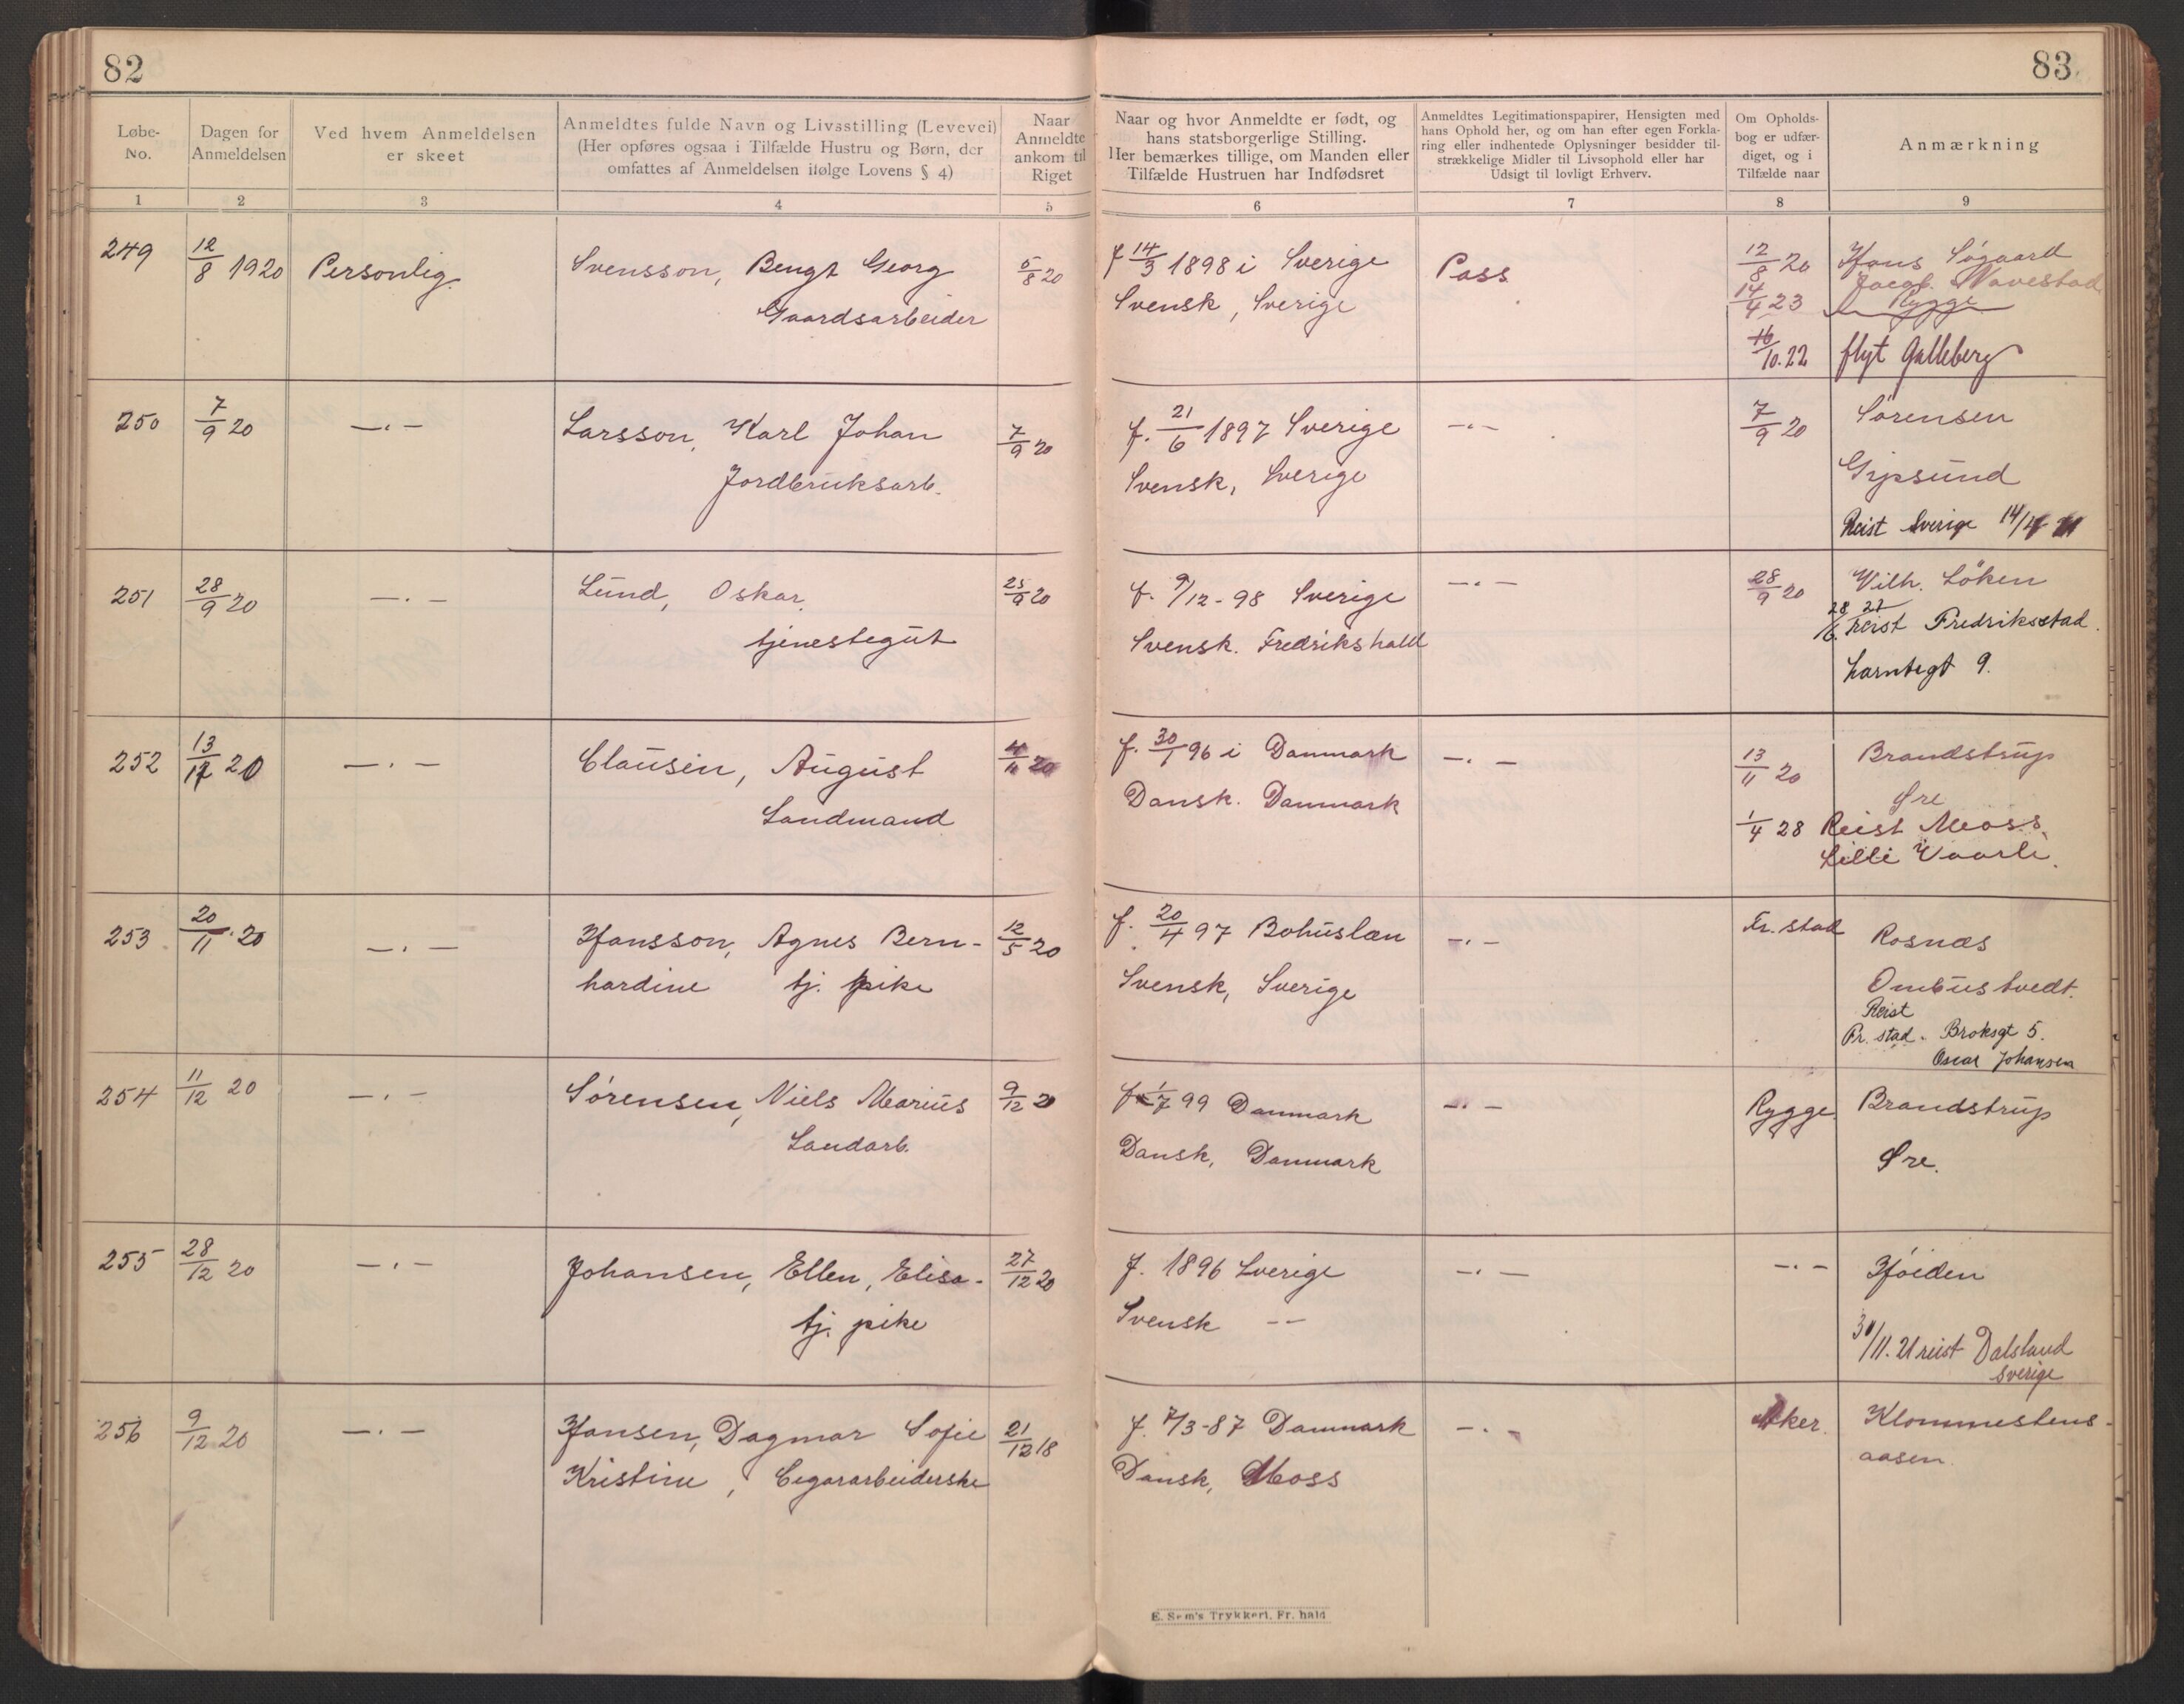 82
83
Løbe-No.
Dagen for Anmeldelsen
Ved hvem Anmeldelsen er skeet
Anmeldtes fulde Navn og Livsstilling (Levevei)
(Her opføres ogsaa i Tilfælde Hustru og Børn, der
omfattes af Anmeldelsen ifølge Lovens § 4)
Naar Anmeldte ankom til Riget
Naar og hvor Anmeldte er født, og
hans statsborgerlige Stilling.
Her bemærkes tillige, om Manden eller
Tilfælde Hustruen har Indfødsret
Anmeldtes Legitimationspapirer, Hensigten med
hans Ophold her, og om han efter egen Forkla-
ring eller indhentede Oplysninger besidder til-
strækkelige Midler til Livsophold eller har
Udsigt til lovligt Erhverv.
Om Opholds-
bog er udfær-
diget, og i
Tilfælde naar
Anmærkning
1 2 3 4 5 6 7 8 9
249 12/8 1920 Personlig. Svensson, Bengt Georg 5/8 20 f 14/3 1898 i Sverige Pass 12/8 20 Hans Søgaard
Gaardsarbeider Svensk, Sverige 14/4 23 Jacob Navestad
Rygge
16/10.22 flyt Galleberg
250 7/9 20 —.— Larsson, Karl Johan 7/9 20 f. 21/6 1897 Sverige —.— 7/9 20 Sørensen
Jordbruksarb. Svensk, Sverige Gipsund
Reist Sverige 14/4
251 28/9 20 —.— Lund, Oskar 25/9 20 f. 9/12-98 Sverige —.— 28/9 20 Wilh. Löken
tjenestegut Svensk. Fredrikshald 28/6. 22 Reist Fredriksstad.
9.
252 13/11 20 —.— Clausen, August 4/11 20 f. 30/1 96 i Danmark —.— 13/11 20 Brandstrup
Landmand Dansk. Danmark Øre
1/4 28 Reist Moss.
Lilli Vaarli.
253 20/11 20 —.— Hansson, Agnes Bern- 12/5 20 f. 20/4 97 Bohuslæn —.— Fr. stad Rosnæs
hardine tj. pike Svensk, Sverige Ombustvedt.
Reist
Fr. stad. Broksgt 5.
Oscar Johansen
254 11/12 20 —.— Sørensen, Niels Marius 9/12 20 f 1/7 99 Danmark —.— Rygge Brandstrup
Landarb. Dansk, Danmark Øre.
255 28/12 20 —.— Johansen, Ellen, Elisa- 27/12 20 f. 1896 Sverige —.— —.— Høiden
tj. pike Svensk —— 30/11. 21 reist Dalsland
Sverige
256 9/12 20 —.— Hansen, Dagmar Sofie 21/12 18 f. 7/3-87 Danmark —.— Aker. Klommestens-
Kristine, Cigararbeiderske Dansk, Moss aasen.
E. Sem's Trykkeri, Fr. hald